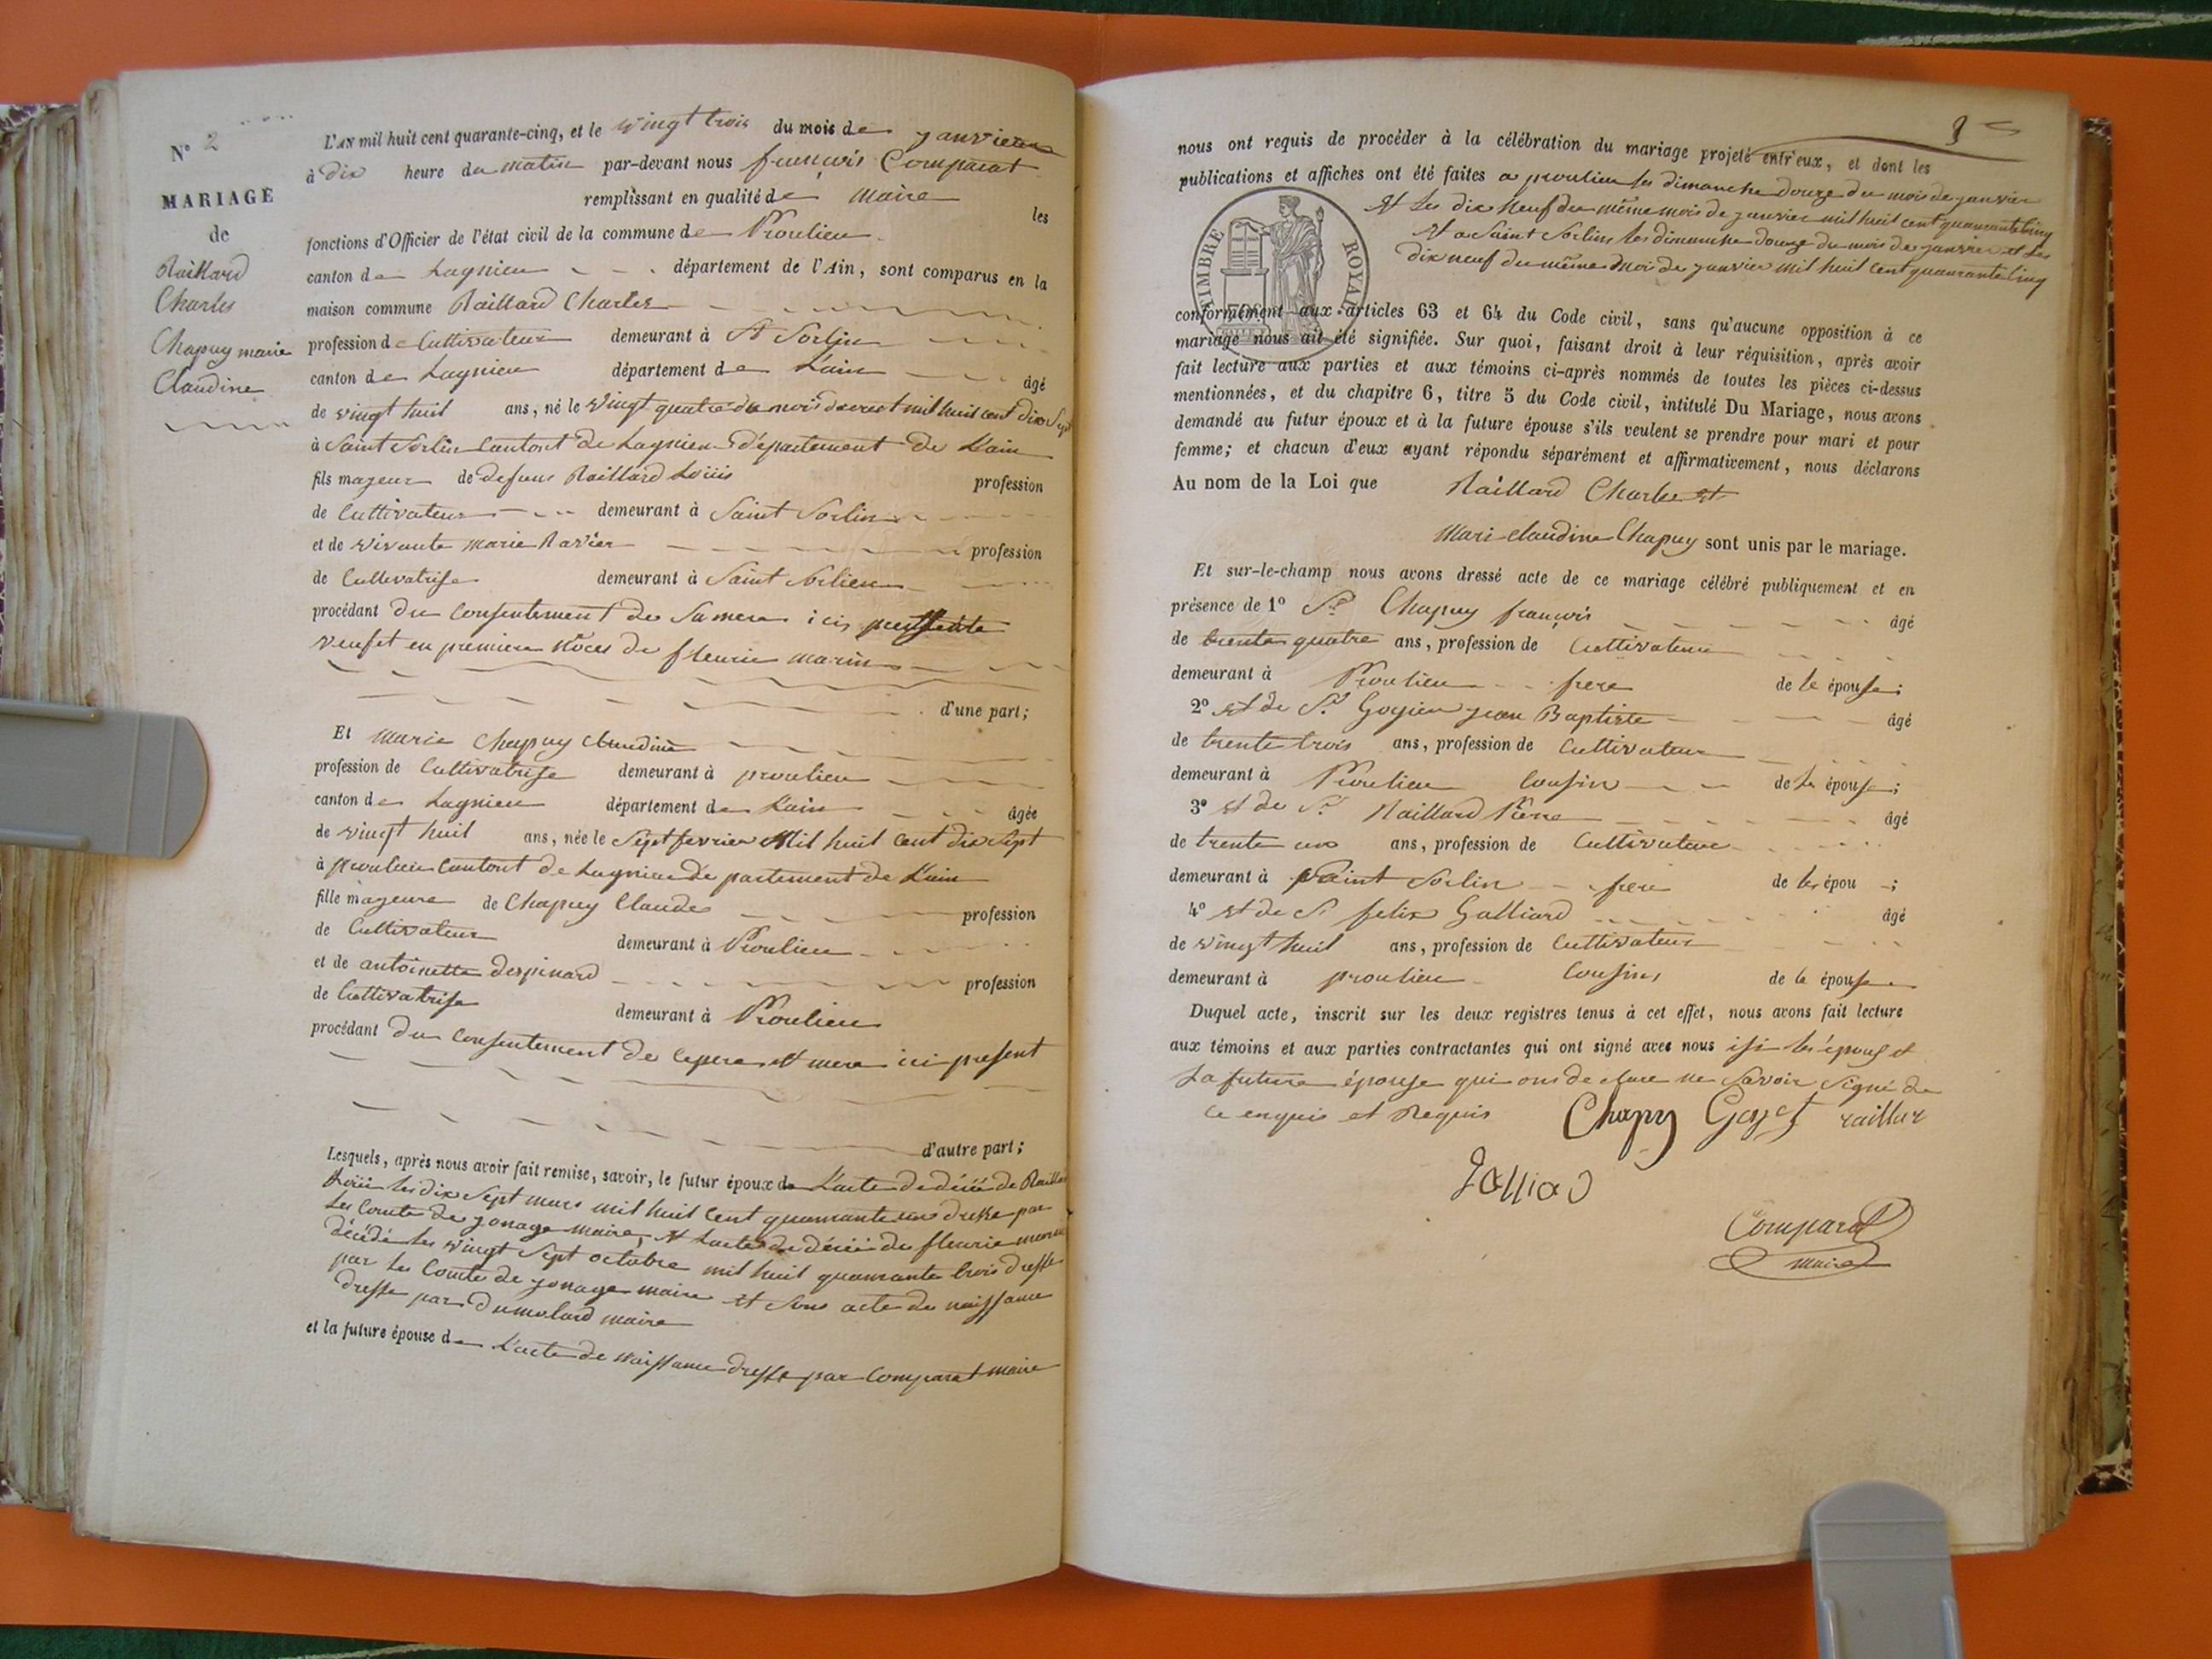 N° 2
MARIAGE
de
Raillard
Charles
Chapuy marie
Claudine
L'AN mil huit cent quarante-cinq, et le vingt trois du mois de janvier
à dix heure du matin par-devant nous françois Comparat
remplissant en qualité de maire les
fonctions d'Officier de l'état civil de la commune de Proulieu
canton de Lagnieu département de l'Ain, sont comparus en la
maison commune Raillard Charles
profession de Cultivateur demeurant à St Sorlin
canton de Lagnieu département de L'ain âgé
de vingt huit ans, né le vingt quatre du mois mil huit cent dix Sept
à Saint Sorlin Cantont de Lagnieu département de L'ain
fils mageur de defunt Raillard Loüis profession
de Cultivateur demeurant à Saint Sorlin
et de vivante marie Ravier profession
de Cultivatrise demeurant à Saint Sorlien
procédant du Consentement de Sa mere ici presente
veuf et en premiere nôces de fleurie marin
d'une part;
Et marie Chapuy Claudine
profession de Cultivatrise demeurant à proulieu
canton de Lagnieu département de L'ain âgée
de vingt huit ans, née le Sept fevrier Mil huit Cent dix Sept
à proulieu Cantont de Lagnieu département de L'ain
fille mageure de Chapuy Claude profession
de Cultivateur demeurant à Proulieu
et de antoinette despinard profession
de Cultivatrise demeurant à Proulieu
procédant du Consentement de le pere et mere ici present
d'autre part;
Lesquels, après nous avoir fait remise, savoir, le futur époux de L'acte de décé de Raillard
Loüis le dix Sept mars mil huit Cent quarante un dressé par
Le Comte de jonage maire, et L'acte de décé de fleurie marin
décédé le vingt Sept octobre mil huit quarante trois dressé
par Le Comte de jonage maire et Son acte de naissance
dressé par dumolard maire
et la future épouse de L'acte de naissance dressé par Comparat maire
3
nous ont requis de procéder à la célébration du mariage projeté entr'eux, et dont les
publications et affiches ont été faites a proulieu le dimanche douze du mois de janvier
et Le dix neuf du même mois de janvier mil huit cent quarante cinq
et a Saint Sorlin le dimanche douze du mois de janvier et Le
dix neuf du même mois de janvier mil huit cent quarante cinq
TIMBRE ROYAL
conformément aux articles 63 et 64 du Code civil, sans qu'aucune opposition à ce
mariage nous ait été signifiée. Sur quoi, faisant droit à leur réquisition, après avoir
fait lecture aux parties et aux témoins ci-après nommés de toutes les pièces ci-dessus
mentionnées, et du chapitre 6, titre 5 du Code civil, intitulé Du Mariage, nous avons
demandé au futur époux et à la future épouse s'ils veulent se prendre pour mari et pour
femme; et chacun d'eux ayant répondu séparément et affirmativement, nous déclarons
Au nom de la Loi que Raillard Charles et
Mari Claudine Chapuy sont unis par le mariage.
Et sur-le-champ nous avons dressé acte de ce mariage célébré publiquement et en
présence de 1° Sr Chapuy françois âgé
de trente quatre ans, profession de Cultivateur
demeurant à Proulieu frere de le épouse;
2° et de Sr jean Baptiste âgé
de trente trois ans, profession de Cultivateur
demeurant à Proulieu Cousin de le épouse;
3° et de Sr Raillard Piërre âgé
de trente un ans, profession de Cultivateur
demeurant à Saint Sorlin frere de le épou;
4° et de Sr felix Galliard âgé
de vingt huit ans, profession de Cultivateur
demeurant à proulieu Cousins de le épouse
Duquel acte, inscrit sur les deux registres tenus à cet effet, nous avons fait lecture
aux témoins et aux parties contractantes qui ont signé avec nous isi les époux et
La future épouse qui ons de clare ne Savoir Signé de
ce enquis et Requis Chapuy Goyet raillar
Galliad
Comparat
maire